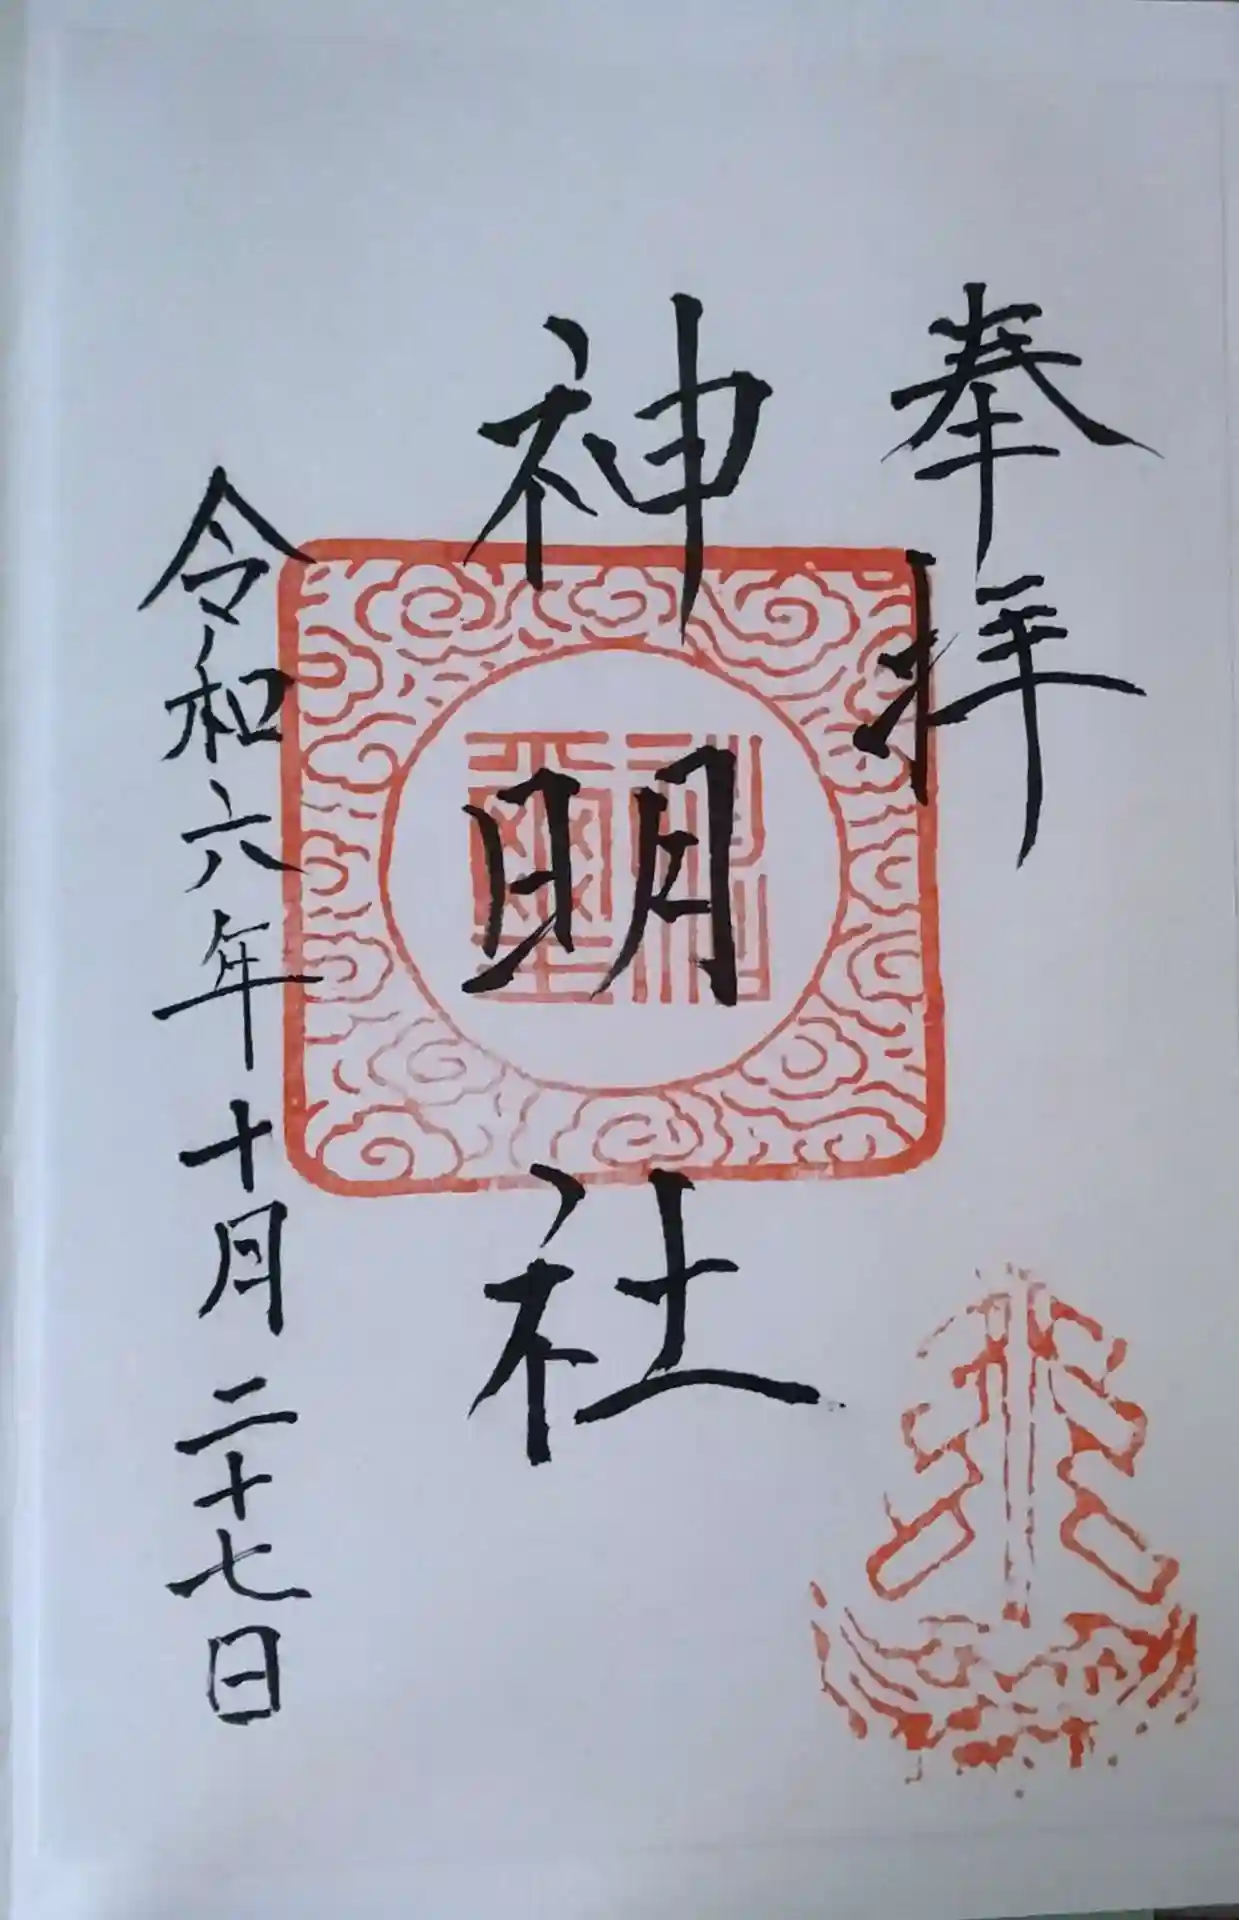 奉拝
神明社
令和六年十月二十七日